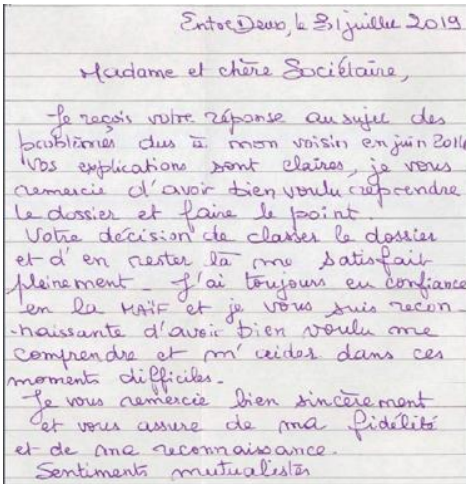 EntreDeux, le 31 juillet 2019
Madame et chère Sociétaire,
Je reçois votre réponse au sujet des
problèmes dus à mon voisin en juin 2014
Vos explications sont claires, je vous
remercie d'avoir bien voulu reprendre
le dossier et faire le point.
Votre décision de classer le dossier
et d'en rester là me satisfait
pleinement. J'ai toujours eu confiance
en la MAIF et je vous suis recon-
-naissante d'avoir bien voulu me
comprendre et m'aider dans ces
moments difficiles.
Je vous remercie bien sincèrement
et vous assure de ma fidélité
et de ma reconnaissance.
Sentiments mutualistes